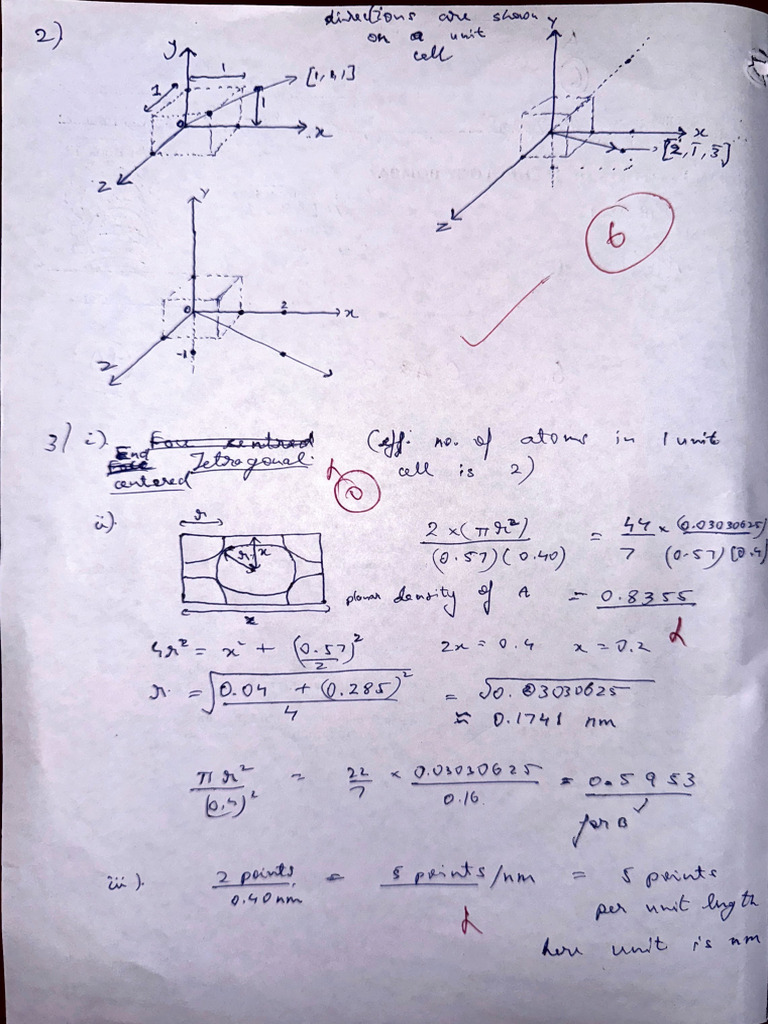 2)
directions are shown
on a unit
cell
y
1
1
1
[1,1,1]
0
x
z
y
x
[2̄,1̄,3̄]
z
y
0
2
x
-1
z
6
3) i). Face centred (eff. no. of atoms in 1 unit
End Tetragonal. cell is 2)
Face
centered
0
ii).
r
r
x
z
2 x (πr²) / (0.57)(0.40) = 44/7 x (0.03030625) / (0.57)(0.4
planar density of A = 0.8355
4r² = x² + (0.57/2)² 2x = 0.4 x = 0.2
r = √0.04 + (0.285)² / 4 = √0.03030625
≈ 0.1741 nm
πr² / (0.4)² = 22/7 x 0.03030625 / 0.16 = 0.5953
for B
iii). 2 points / 0.40nm = 5 points/nm = 5 points
per unit length
here unit is nm